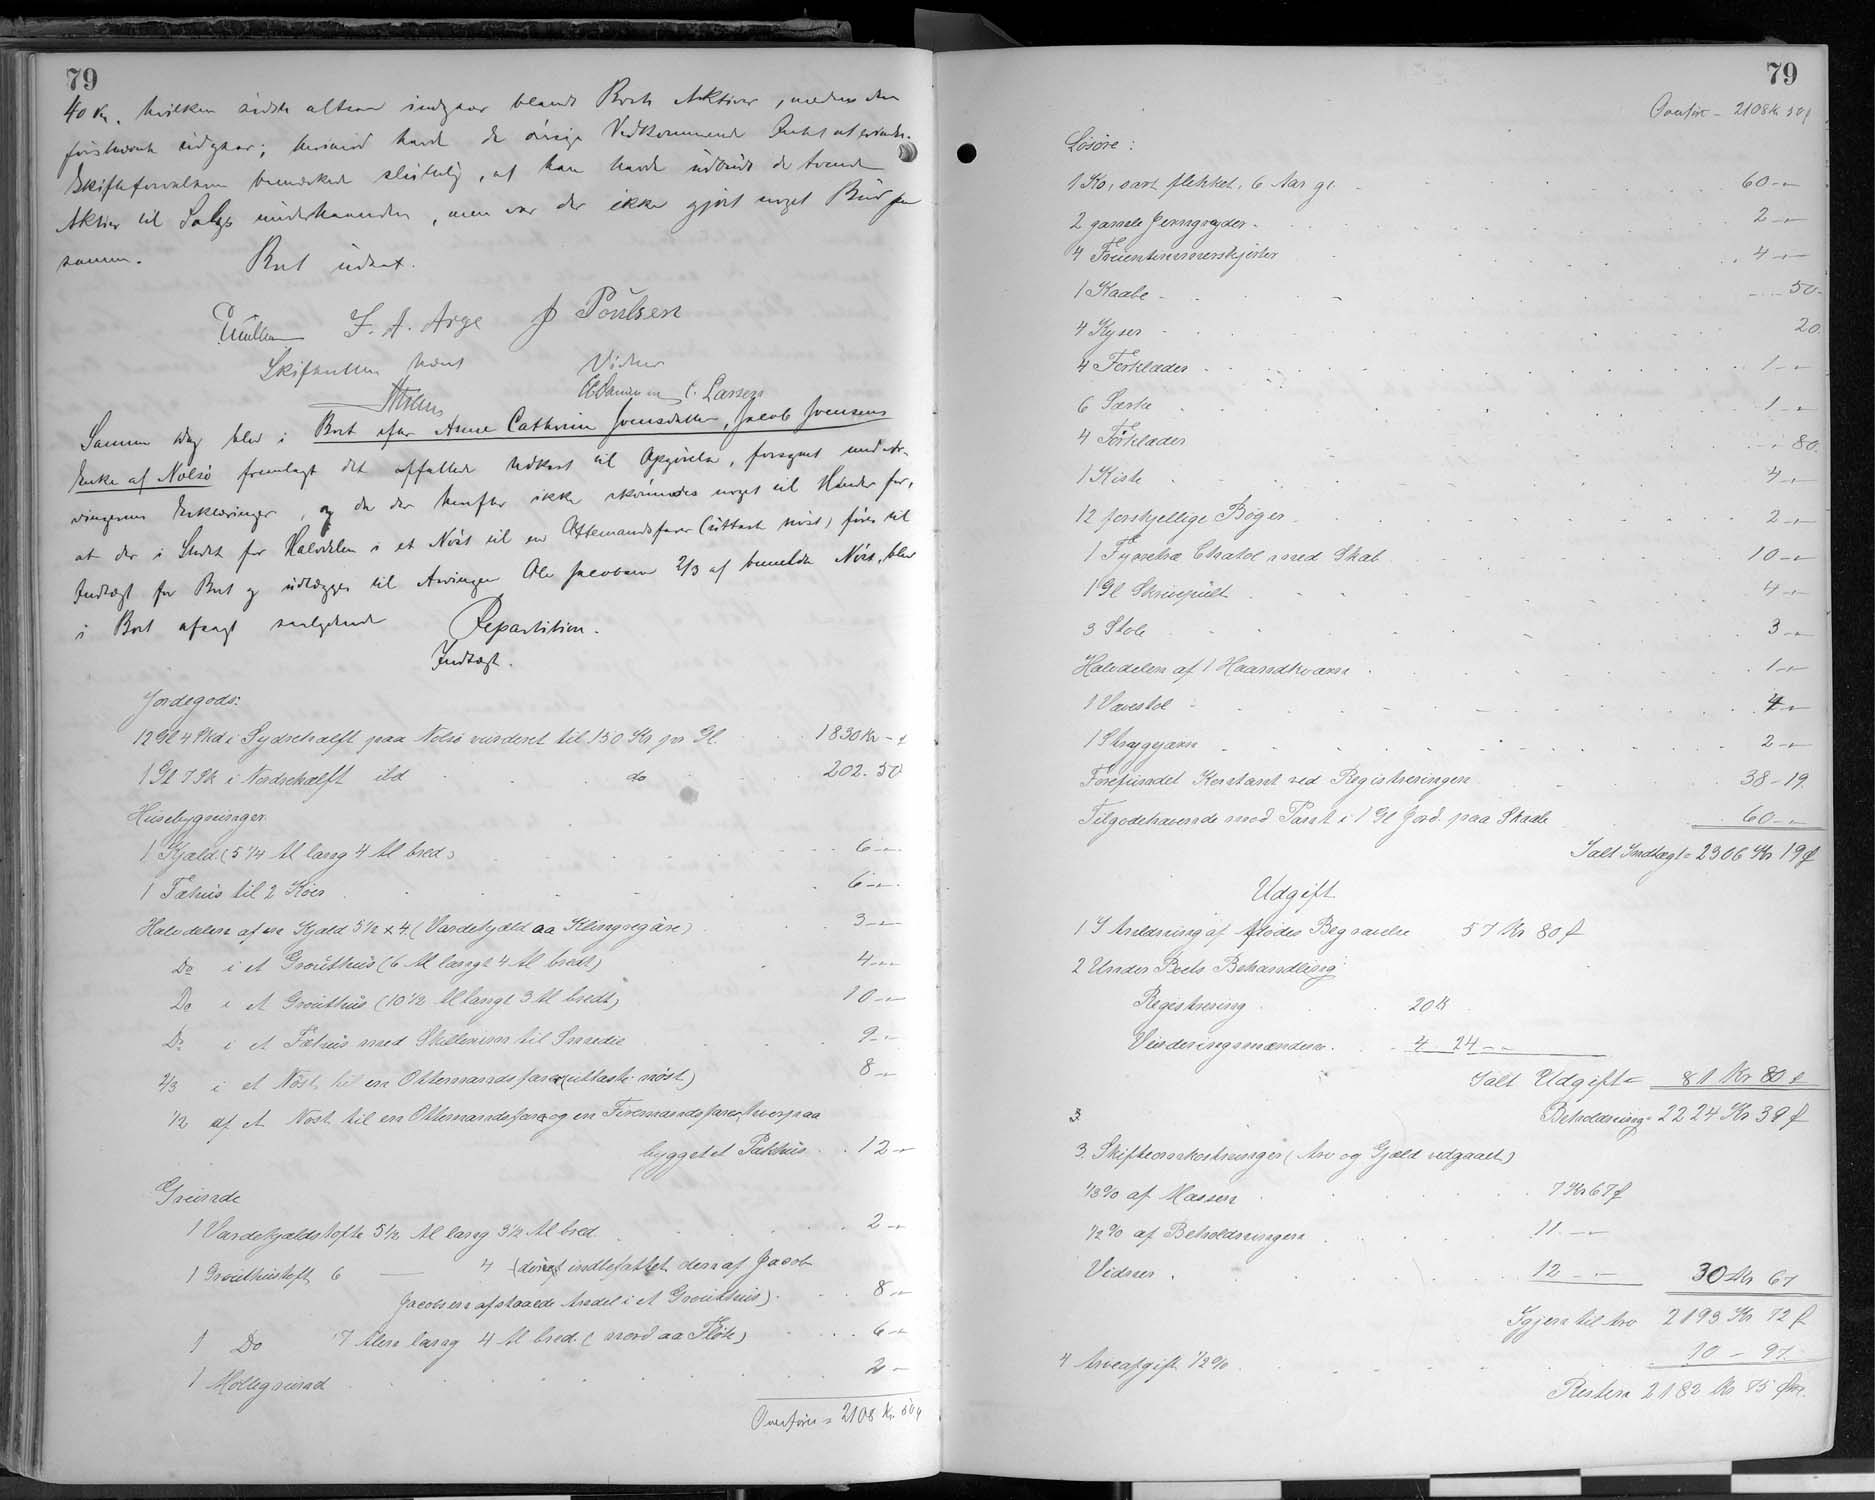 79
40 Kr. hvilken sidste altsaa indgaar blandt Boets Aktiver, medens den
førstnævnte udgaar; herimod havde de øvrige Vedkommende Intet at erindre.
Skifteforvalteren bemærkede slutelig, at han havde udbudt de tvende
Aktiver til Salgs underhaanden, men var der ikke gjort noget Bud paa
samme.
Boet udsat.
F. A. Arge J Poulsen
Skifteretten hævet
Vidner
C. Larsen
Samme Dag blev i Boet efter Anne Cathrine Joensdatter, Jacob Joensens
Enke af Nolsö fremlagt det affattede Udkast til Opgörelse, forsynet med Ar-
vingernes Erklæringer, og da der herefter ikke skönnedes noget til Hinder for,
at der i Stedet for Halvdelen i et Nöst til en Ottemandsfarer (úttasti nöst) föres til
Indtægt for Boet og udlægges til Arvingen Ole Jacobsen 2/3 af bemeldte Nöst, blev
i Boet afsagt saalydende
Repartition.
Indtægt.
Jordegods:
12 Gl 4 Skd i Sydrehælft paa Nolsö vurderet til 150 Kr pr. Gl. 1830 Kr - "
1 Gl 7 Sk i Nordrehælft ibd do 202. 50
Husebygninger
1 Kjæld (5 1/4 Al lang 4 Al bred) 6 - "
1 Fæhus til 2 Köer 6 - "
Halvdelen af en Kjæld 5 1/2 x 4. ( Vardekjæld aa Klingregåre) 3 - "
Do i et Grouthús (6 Al langt 4 Al bredt) 4 - "
Do i et Grouthús (10 1/2 Al langt 3 Al bredt) 10 - "
Do i et Fæhus med Skillerum til Smedie 9 - "
2/3 i et Nöst til en Ottemandsfarer (úttasti nöst) 8 - "
1/2 af et Nöst til en Ottemandsfarer og en Firemandsfarer, hvorpaa
bygget et Pakhus 12 - "
Grunde
1 Vardekjældstofte 5 1/2 Al lang 3 1/2 Al bred 2 - "
1 Grouthústoft 6 — 4 (deri indbefattet den af Jacob
Jacobsen afstaaede Andel i et Grouthús) 8 - "
1 Do 7 Alen lang 4 Al bred. ( nord aa Flöti) 6 - "
1 Möllegrund 2 -
Overföres = 2108 Kr. 50 ø
79
Overfört - 2108 Kr 50 ø
Lösöre:
1 Ko, sort flekket, 6 Aar gl. 60 - "
2 gamle Jerngryder 2 - "
4 Fruentimmerskjorter 4 - "
1 Kaabe 50 -
4 Kyser 20
4 Forklæder 1 - "
6 Særke 1 - "
4 Törklæder 80
1 Kiste 4 - "
12 forskjellige Böger 2 - "
1 Fyrretræ Chatol med Skab 10 - "
1 Gl Skrivepult 4 - "
3 Stole 3 - "
Halvdelen af 1 Haandkværn 1 - "
1 Vævestol 4 - "
1 Strygejærn 2 - "
Forefundet Kontant ved Registreringen 38 - 19.
Tilgodehavende mod Pant i 1 Gl Jord. paa Skaale 60 - "
Ialt Indtægt = 2306 Kr 19 ø
Udgift
1. I Anledning af Afdödes Begravelse 57 Kr 80 ø
2 Under Boets Behandling:
Registrering 20 K
Vurderingsmændene 4 24 - "
Ialt Udgift = 81 Kr 80 ø
3 Beholdning = 2224 Kr 39 ø
3. Skifteomkostninger (Arv og Gjæld vedgaaet)
1/3 % af Massen 7 Kr 67 ø
1/2 % af Beholdningen 11 - "
Vidner 12 - " 30 Kr 67
Igjen til Arv 2193 Kr 72 ø
4 Arveafgift 1/2 % 10 - 97
Resten 2182 Kr 75 Öre.